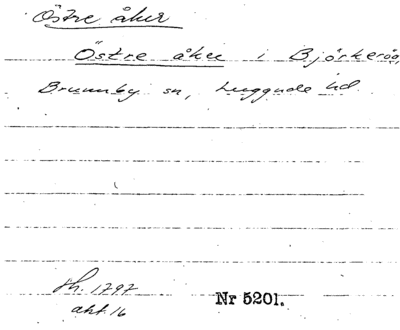 Östre åker
Östre åker i Björkeröd,
Brunnby sn, Luggude hd.
sh. 1797
akt. 16
Nr 5201.